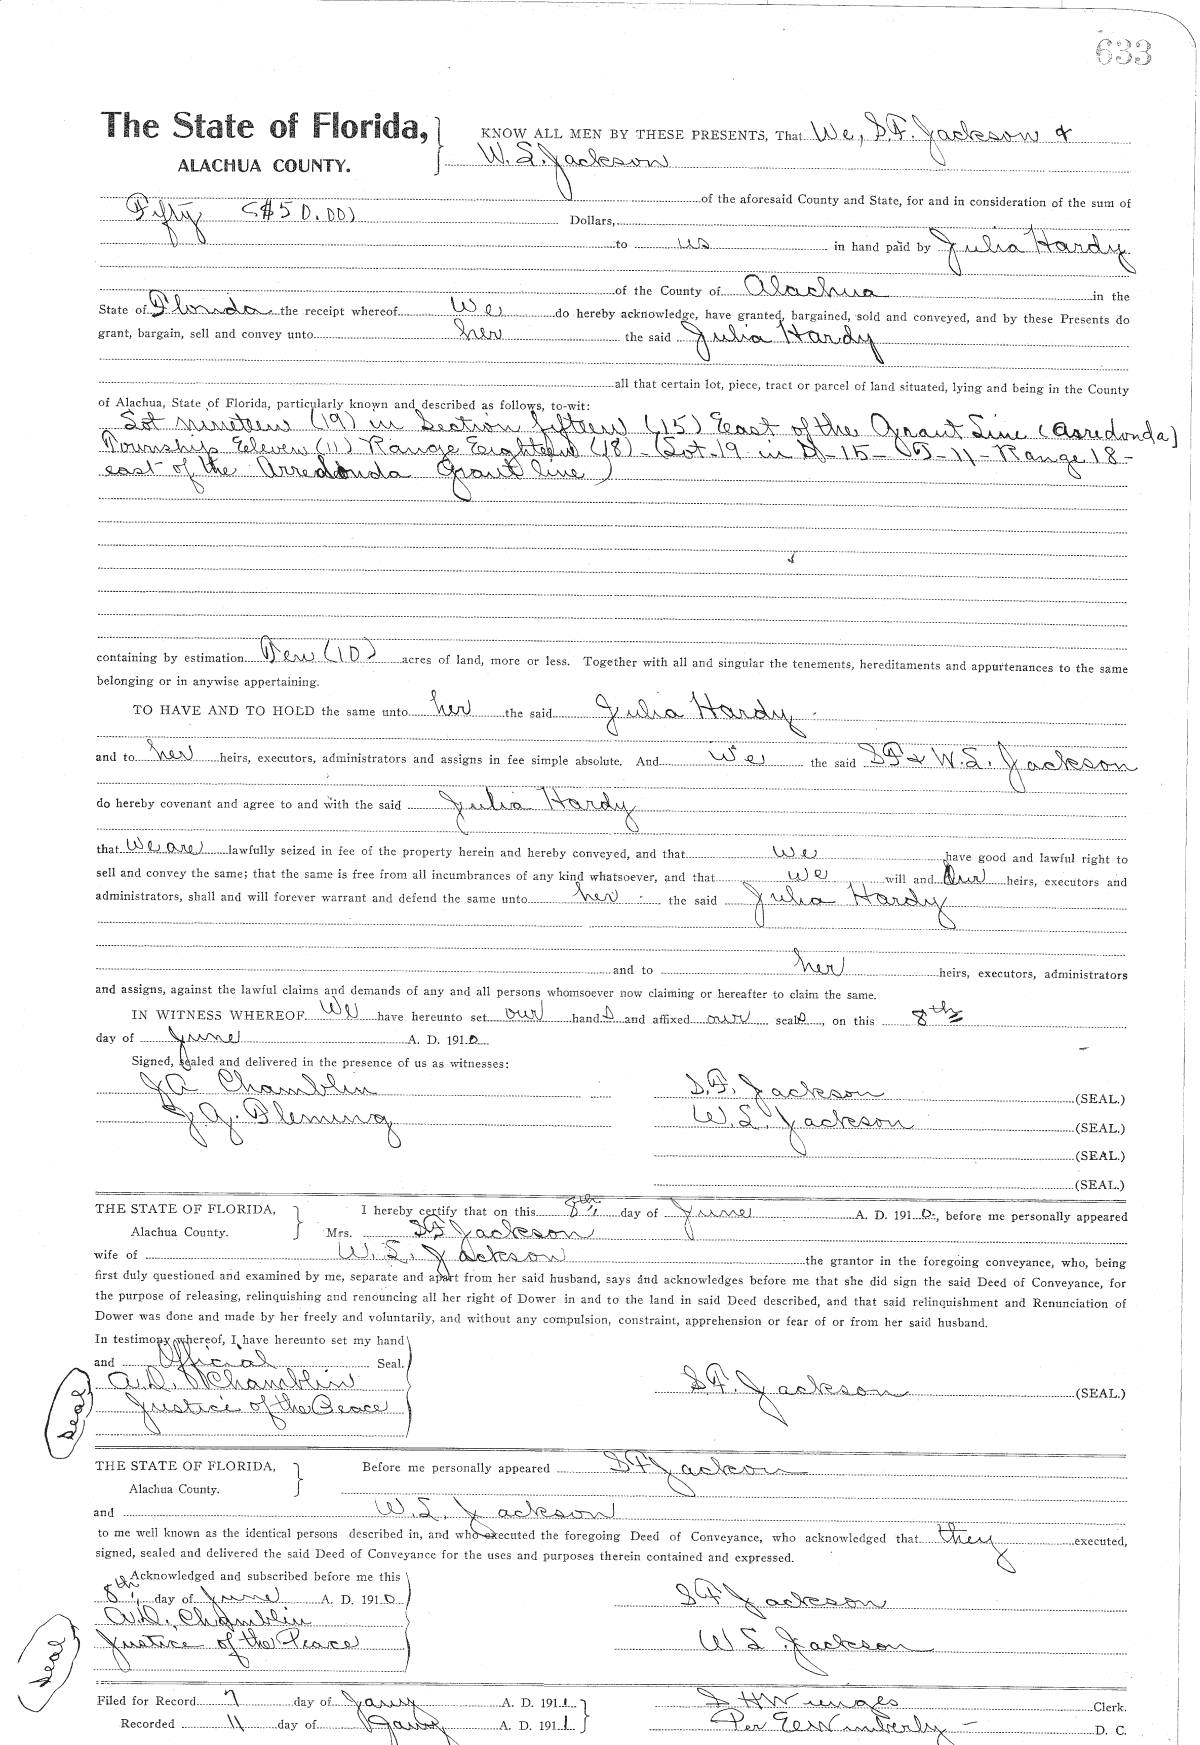 633
The State of Florida, KNOW ALL MEN BY THESE PRESENTS, That We, S.F. Jackson &
ALACHUA COUNTY. W. S. Jackson
of the aforesaid County and State, for and in consideration of the sum of
Fifty ($50.00) Dollars,
to us in hand paid by Julia Hardy
of the County of Alachua in the
State of Florida the receipt whereof We do hereby acknowledge, have granted, bargained, sold and conveyed, and by these Presents do
grant, bargain, sell and convey unto her the said Julia Hardy
all that certain lot, piece, tract or parcel of land situated, lying and being in the County
of Alachua, State of Florida, particularly known and described as follows, to-wit:
Lot nineteen (19) in Section fifteen (15) East of the Grant Line (Arredonda)
Township Eleven (11) Range Eighteen (18) - (Lot-19 in S-15-T-11-Range 18-
east of the Arredonda Grant line)
containing by estimation Ten (10) acres of land, more or less. Together with all and singular the tenements, hereditaments and appurtenances to the same
belonging or in anywise appertaining.
TO HAVE AND TO HOLD the same unto her the said Julia Hardy
and to her heirs, executors, administrators and assigns in fee simple absolute. And We the said SF & W.S. Jackson
do hereby covenant and agree to and with the said Julia Hardy
that We are lawfully seized in fee of the property herein and hereby conveyed, and that we have good and lawful right to
sell and convey the same; that the same is free from all incumbrances of any kind whatsoever, and that we will and Our heirs, executors and
administrators, shall and will forever warrant and defend the same unto her the said Julia Hardy
and to her heirs, executors, administrators
and assigns, against the lawful claims and demands of any and all persons whomsoever now claiming or hereafter to claim the same.
IN WITNESS WHEREOF We have hereunto set our hands and affixed our seals, on this 8th
day of June A. D. 1910
Signed, sealed and delivered in the presence of us as witnesses:
J A Chamblin S.F. Jackson (SEAL.)
J. G. Fleming W. S. Jackson (SEAL.)
(SEAL.)
(SEAL.)
THE STATE OF FLORIDA, I hereby certify that on this 8th day of June A. D. 1910, before me personally appeared
Alachua County. Mrs. SF Jackson
wife of W. S. Jackson the grantor in the foregoing conveyance, who, being
first duly questioned and examined by me, separate and apart from her said husband, says and acknowledges before me that she did sign the said Deed of Conveyance, for
the purpose of releasing, relinquishing and renouncing all her right of Dower in and to the land in said Deed described, and that said relinquishment and Renunciation of
Dower was done and made by her freely and voluntarily, and without any compulsion, constraint, apprehension or fear of or from her said husband.
In testimony whereof, I have hereunto set my hand
and Official Seal.
A.D. Chamblin S.F. Jackson (SEAL.)
Seal Justice of the Peace
THE STATE OF FLORIDA, Before me personally appeared SF Jackson
Alachua County.
and W. S. Jackson
to me well known as the identical persons described in, and who executed the foregoing Deed of Conveyance, who acknowledged that they executed,
signed, sealed and delivered the said Deed of Conveyance for the uses and purposes therein contained and expressed.
Acknowledged and subscribed before me this
8th day of June A. D. 1910 SF Jackson
A.D. Chamblin
Seal Justice of the Peace W S Jackson
Filed for Record 7 day of Jany A. D. 1911 S H Wienges Clerk.
Recorded 11 day of Jany A. D. 1911 Per EE Wimberly - D. C.